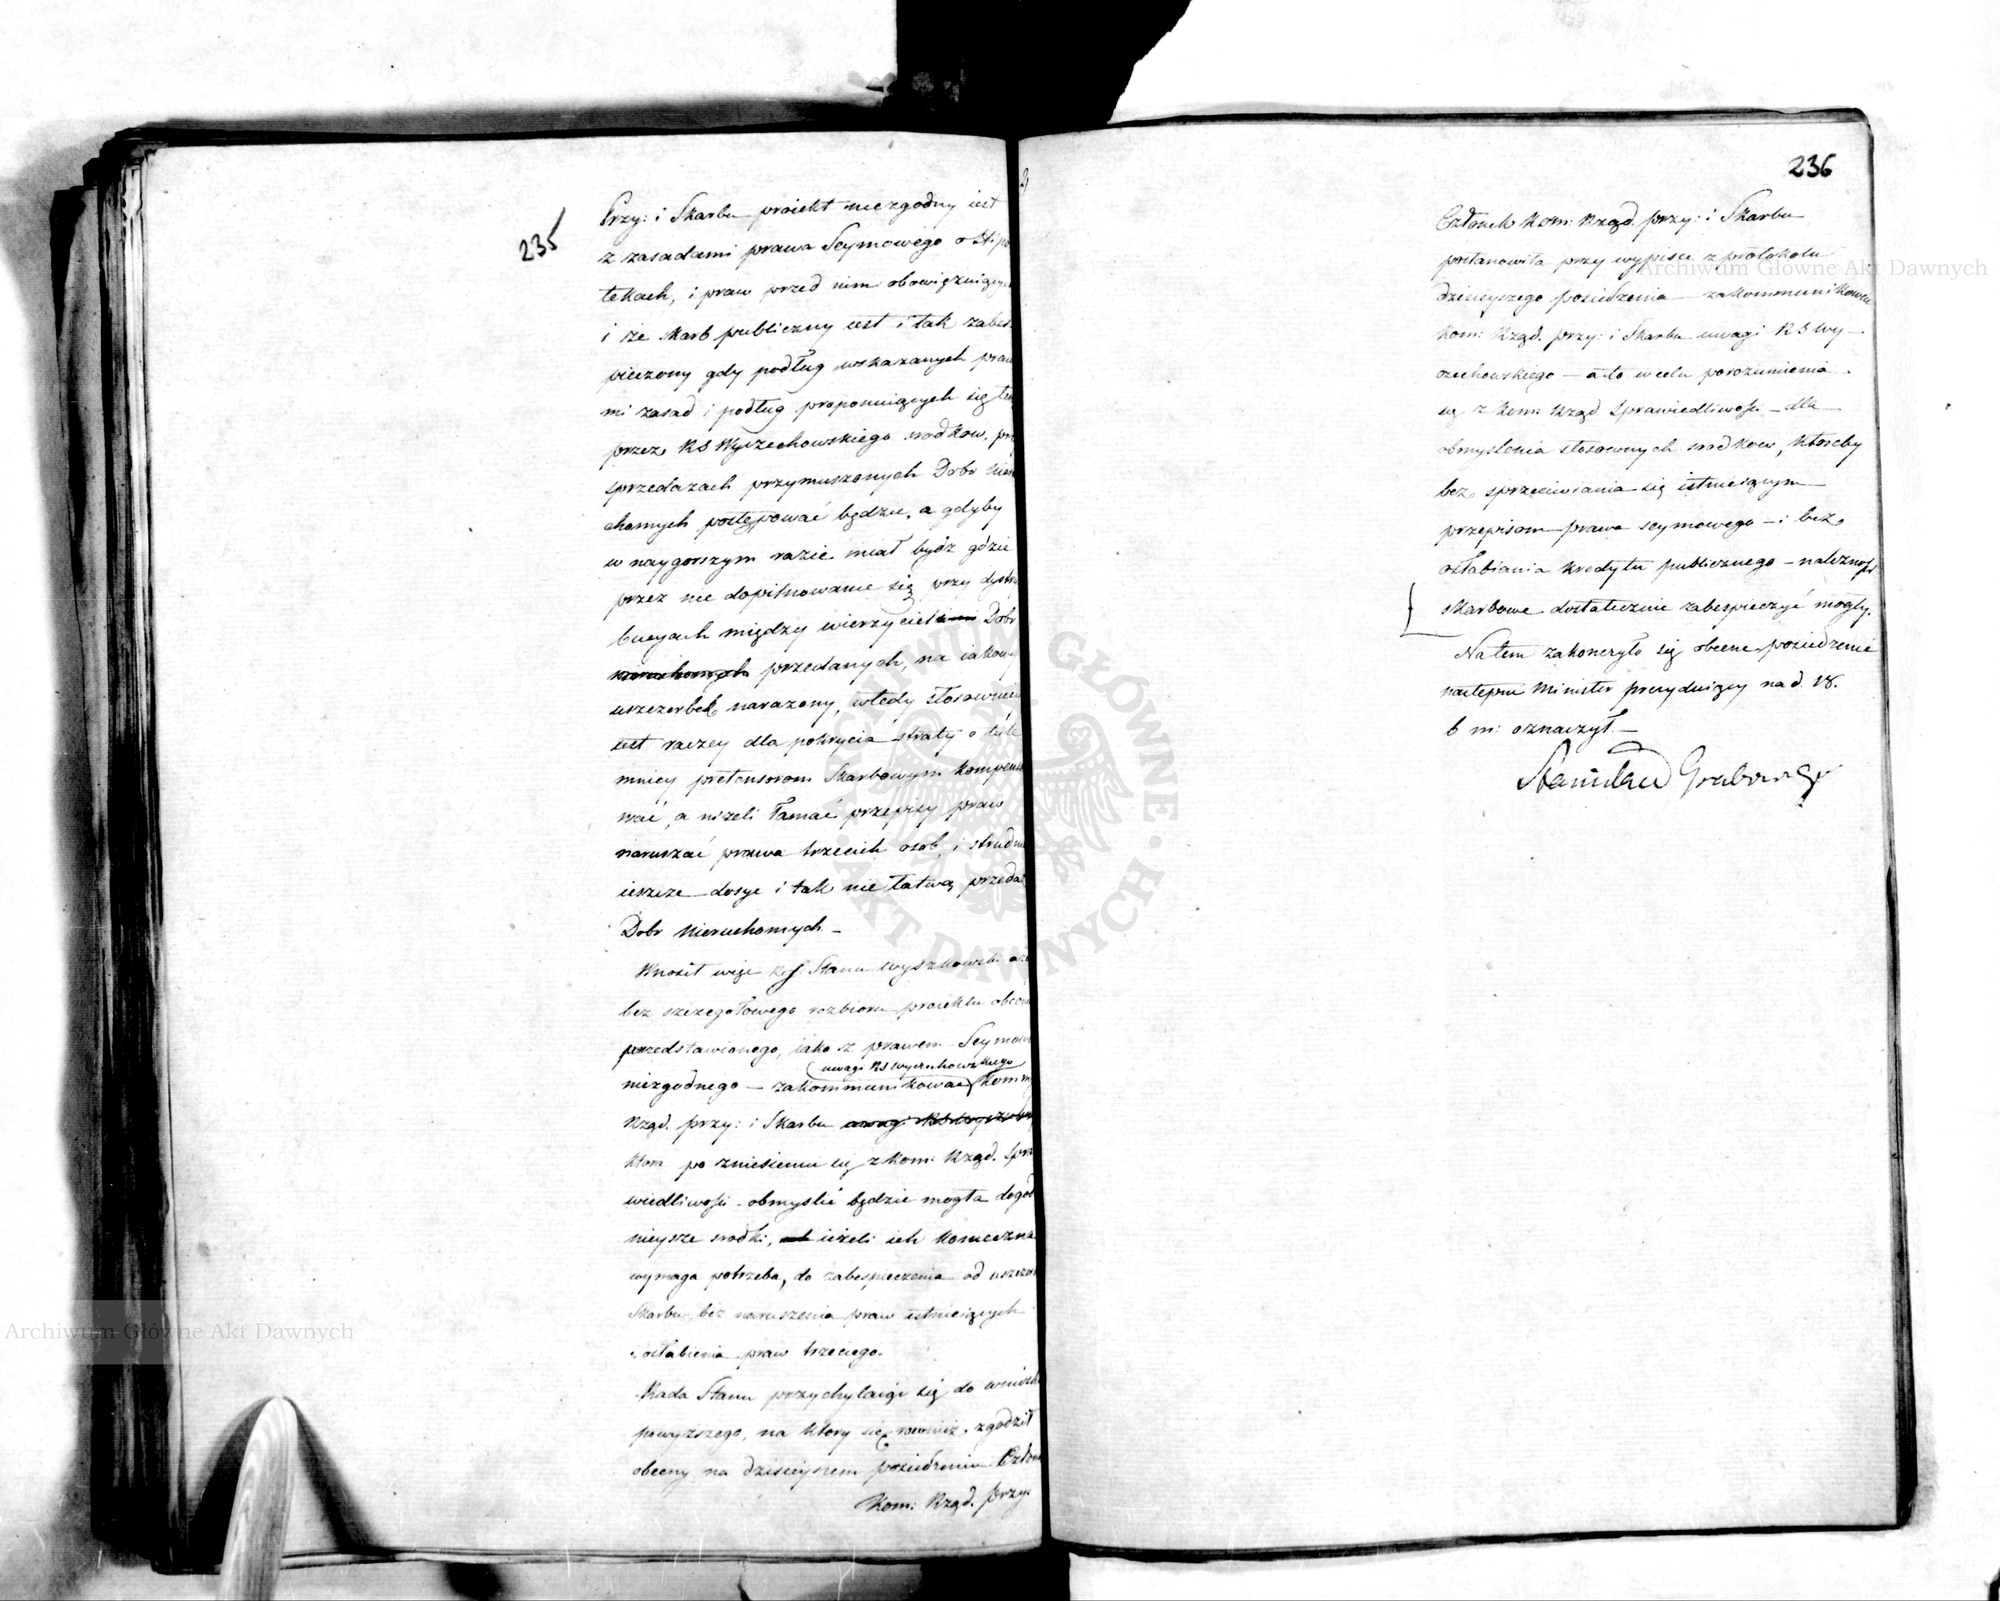 235
Przy: i Skarbu proiekt niezgodny iest
z zasadami prawa Seymowego o Hipo
tekach, i praw przed nim obowięzuiących
i że skarb publiczny iest i tak zabes
pieczony gdy podług wskazanych praw
mi zasad i podług proponuiących się
przez RS Wyczechowskiego srodkow, przy
sprzedazach przymuszonych Dobr Nieru
chomych postępować będzie, a gdyby
w naygorszym razie miał bydź gdzie
przez nie dopilnowanie się przy dystry
bucyach między wierzycielami Dobr
nieruchomych przedanych, na iakowy
uszczerbek narazony, wtedy stosowniey
iest raczey dla pokrycia straty o tyle
mniey pretensorom Skarbowym kompenso
wać, a nizeli łamać przepisy praw
naruszać prawa trzecich osob, i
ieszcze dosyc i tak nie łatwą przedaż
Dobr Nieruchomych –
Wnosił więc Stanu Wyszkowski
bez szczegołowego rozbioru proiektu obecnie
przedstawionego, iako z prawem Seymowym
uwagi RS Wyczechowskiego
niezgodnego – zakommunikować Komm
Rząd. przy: i Skarbu uwagi RS
ktora po zniesieniu się z Kom: Rząd. Spra
wiedliwości obmyslić będzie mogła dogod
nieysze srodki, ieżeli ich konieczna
wymaga potrzeba, do zabespieczenia od uszczerbku
Skarbu, bez naruszenia praw istnieiących
i osłabienia praw trzeciego.
Rada Stanu przychylaiąc się do wniosku
powyższego, na ktory się rownież zgodził
obecny na dzisieyszem posiedzeniu Członek
Kom: Rząd. przy:
236
Członek Kom: Rząd. przy: i Skarbu
postanowiła przy wypisie z protokołu
dzisieyszego posiedzenia zakommunikować
Kom: Rząd. przy: i Skarbu uwagi RS Wy–
czechowskiego – a to w celu porozumienia
się z Kom: Rząd Sprawiedliwości – dla
obmyslenia stosownych srodkow, ktoreby
bez sprzeciwiania się istnieiącym
przepisom prawa seymowego – i bez
osłabiania kredytu publicznego – należności
skarbowe dostatecznie zabespieczyć mogły.
Na tem zakonczyło się obecne posiedzenie
następne Minister prezyduiący na d. 18.
b m: oznaczył –
Stanisław Grabowski
Archiwum Główne Akt Dawnych
Archiwum Główne Akt Dawnych
ARCHIWUM GŁÓWNE · AKT DAWNYCH ·